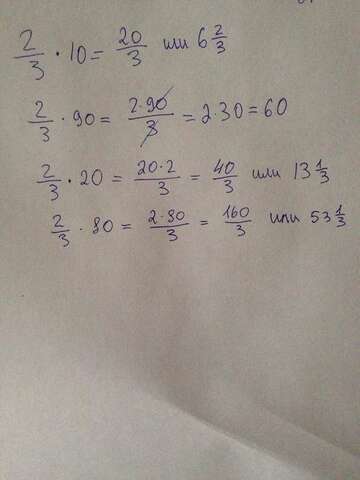 2/3 · 10 = 20/3 или 6 2/3
2/3 · 90 = 2·90/3 = 2·30 = 60
2/3 · 20 = 20·2/3 = 40/3 или 13 1/3
2/3 · 80 = 2·80/3 = 160/3 или 53 1/3